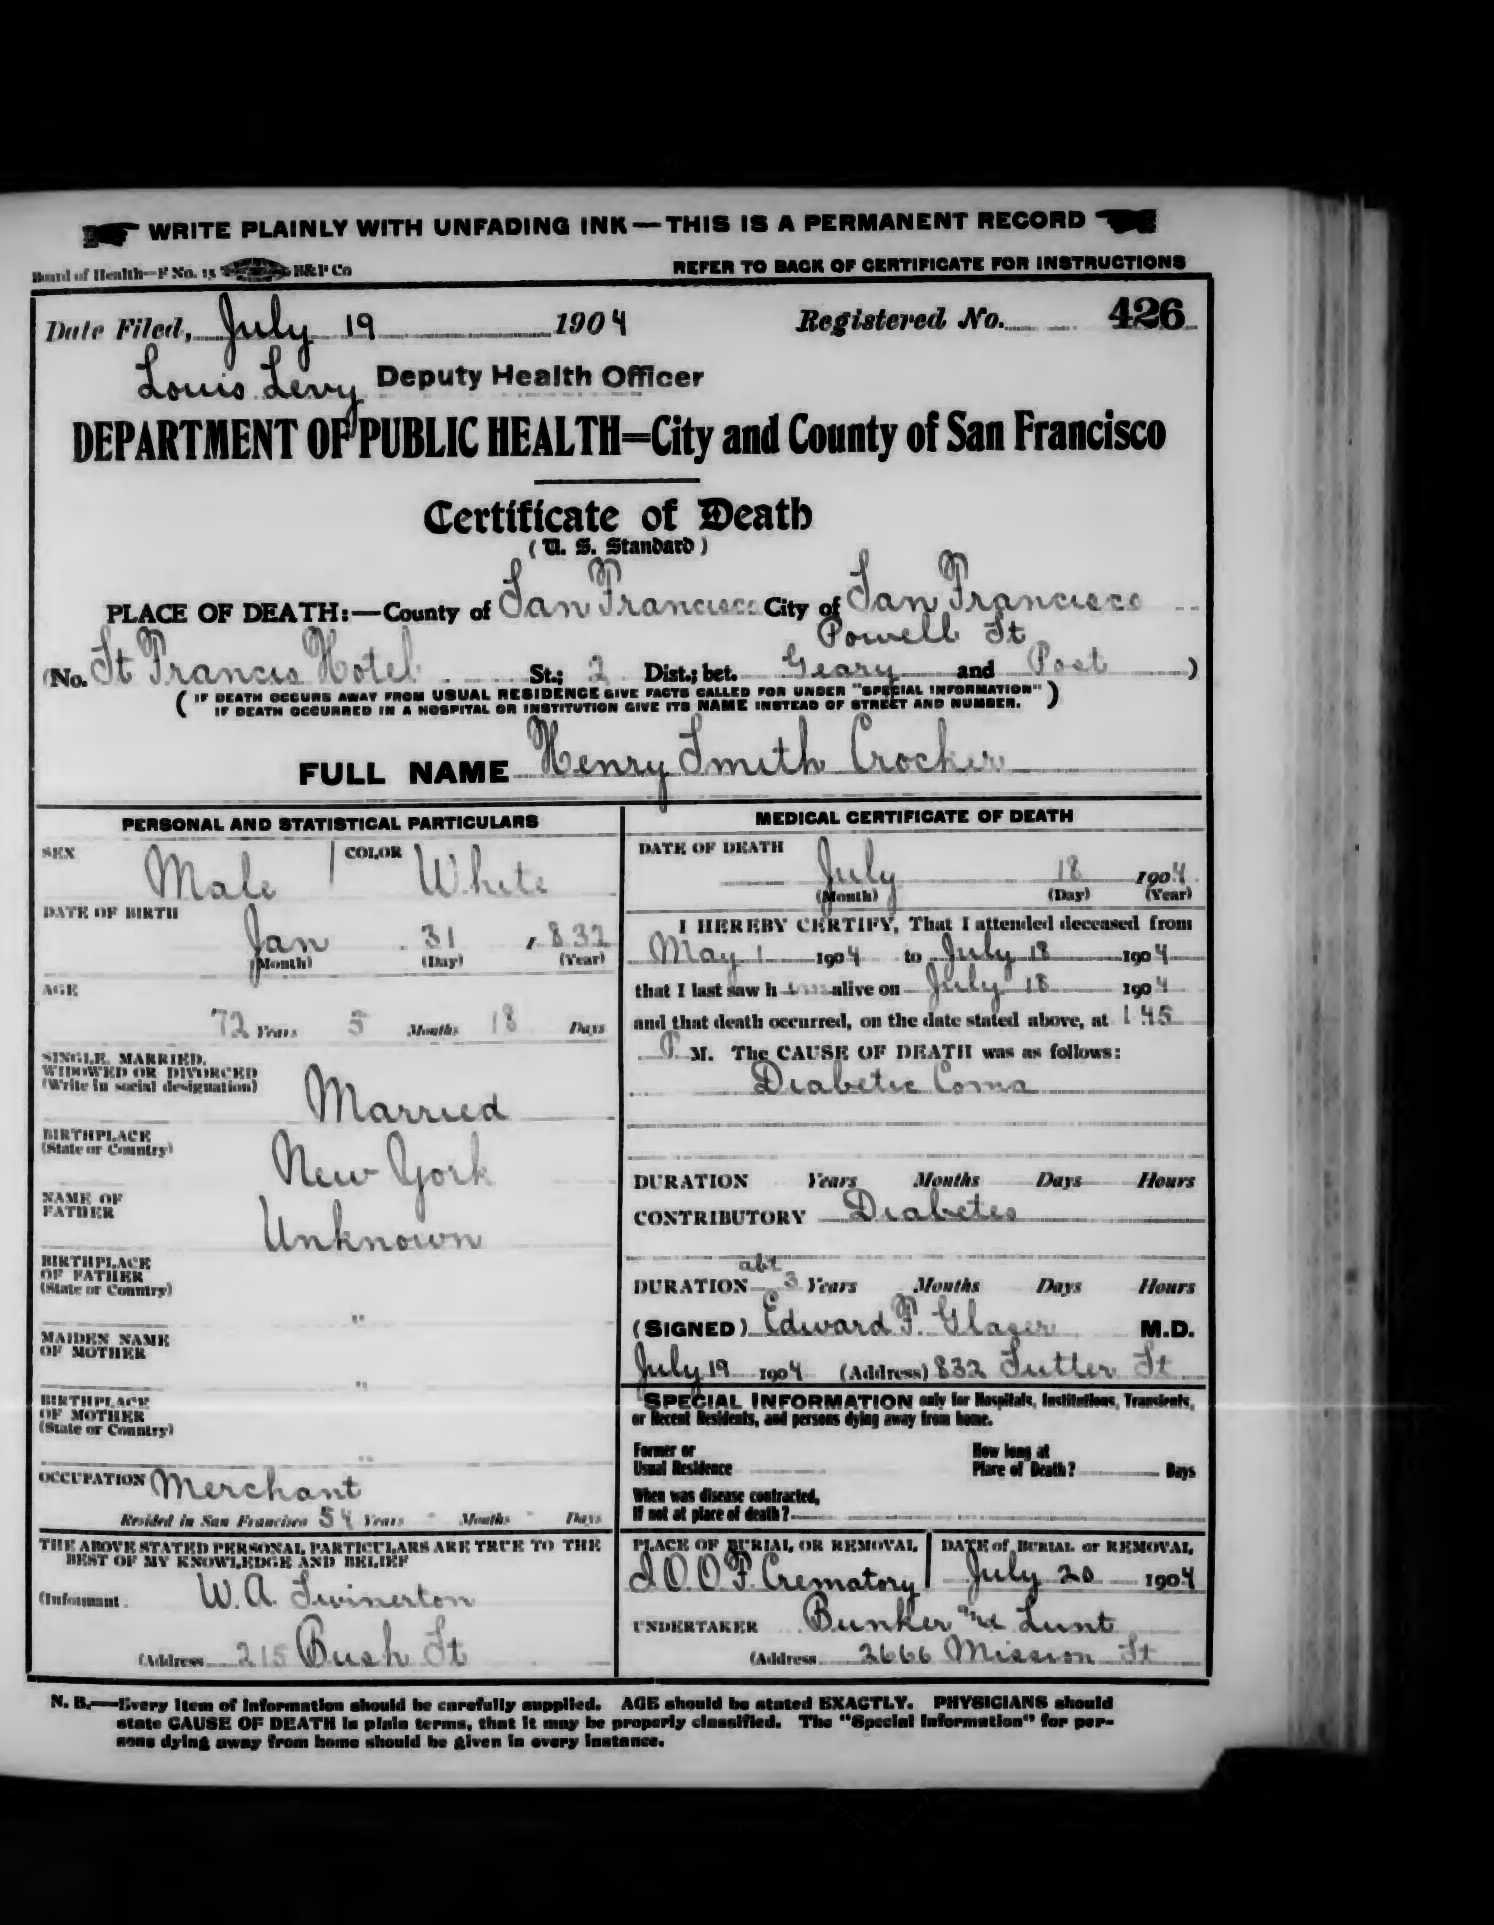 WRITE PLAINLY WITH UNFADING INK—THIS IS A PERMANENT RECORD
Board of Health—F No. 15 B&P Co
REFER TO BACK OF CERTIFICATE FOR INSTRUCTIONS
Date Filed, July 19 1904 Registered No. 426
Louis Levy Deputy Health Officer
DEPARTMENT OF PUBLIC HEALTH=City and County of San Francisco
Certificate of Death
(U. S. Standard)
PLACE OF DEATH:—County of San Francisco City of San Francisco
Powell St
(No. St Francis Hotel St.; 2 Dist.; bet. Geary and Post )
( IF DEATH OCCURS AWAY FROM USUAL RESIDENCE GIVE FACTS CALLED FOR UNDER "SPECIAL INFORMATION"
IF DEATH OCCURRED IN A HOSPITAL OR INSTITUTION GIVE ITS NAME INSTEAD OF STREET AND NUMBER. )
FULL NAME Henry Smith Crocker
PERSONAL AND STATISTICAL PARTICULARS
SEX Male COLOR White
DATE OF BIRTH
Jan 31 , 832
(Month) (Day) (Year)
AGE
72 Years 5 Months 18 Days
SINGLE, MARRIED,
WIDOWED OR DIVORCED
(Write in social designation) Married
BIRTHPLACE
(State or Country) New York
NAME OF
FATHER Unknown
BIRTHPLACE
OF FATHER
(State or Country)
"
MAIDEN NAME
OF MOTHER
"
BIRTHPLACE
OF MOTHER
(State or Country)
"
OCCUPATION Merchant
Resided in San Francisco 54 Years - Months - Days
THE ABOVE STATED PERSONAL PARTICULARS ARE TRUE TO THE
BEST OF MY KNOWLEDGE AND BELIEF
(Informant W. A. Swinerton
(Address 215 Bush St
MEDICAL CERTIFICATE OF DEATH
DATE OF DEATH
July 18 1904
(Month) (Day) (Year)
I HEREBY CERTIFY, That I attended deceased from
May 1 1904 to July 18 1904
that I last saw h im alive on July 18 1904
and that death occurred, on the date stated above, at 1 45
P M. The CAUSE OF DEATH was as follows:
Diabetic Coma
DURATION Years Months Days Hours
CONTRIBUTORY Diabetes
abt
DURATION 3 Years Months Days Hours
(SIGNED) Edward F. Glaser M.D.
July 19 1904 (Address) 832 Sutter St
SPECIAL INFORMATION only for Hospitals, Institutions, Transients,
or Recent Residents, and persons dying away from home.
Former or
Usual Residence
How long at
Place of Death? Days
When was disease contracted,
If not at place of death?
PLACE OF BURIAL OR REMOVAL
I.O.O.F. Crematory
DATE of BURIAL or REMOVAL
July 20 1904
UNDERTAKER Bunker and Lunt
(Address 2666 Mission St
N. B.—Every item of information should be carefully supplied. AGE should be stated EXACTLY. PHYSICIANS should
state CAUSE OF DEATH in plain terms, that it may be properly classified. The "Special Information" for per-
sons dying away from home should be given in every instance.